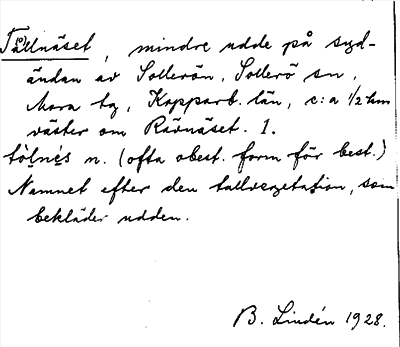 Tallnäset, mindre udde på syd-
ändan av Sollerön, Sollerö sn,
Mora tg, Kopparb. län, c:a 1/2 km
väster om Rävnäset. 1.
n. (ofta obest. form för best.)
Namnet efter den tallvegetation, som
bekläder udden.
B. Lindén 1928.